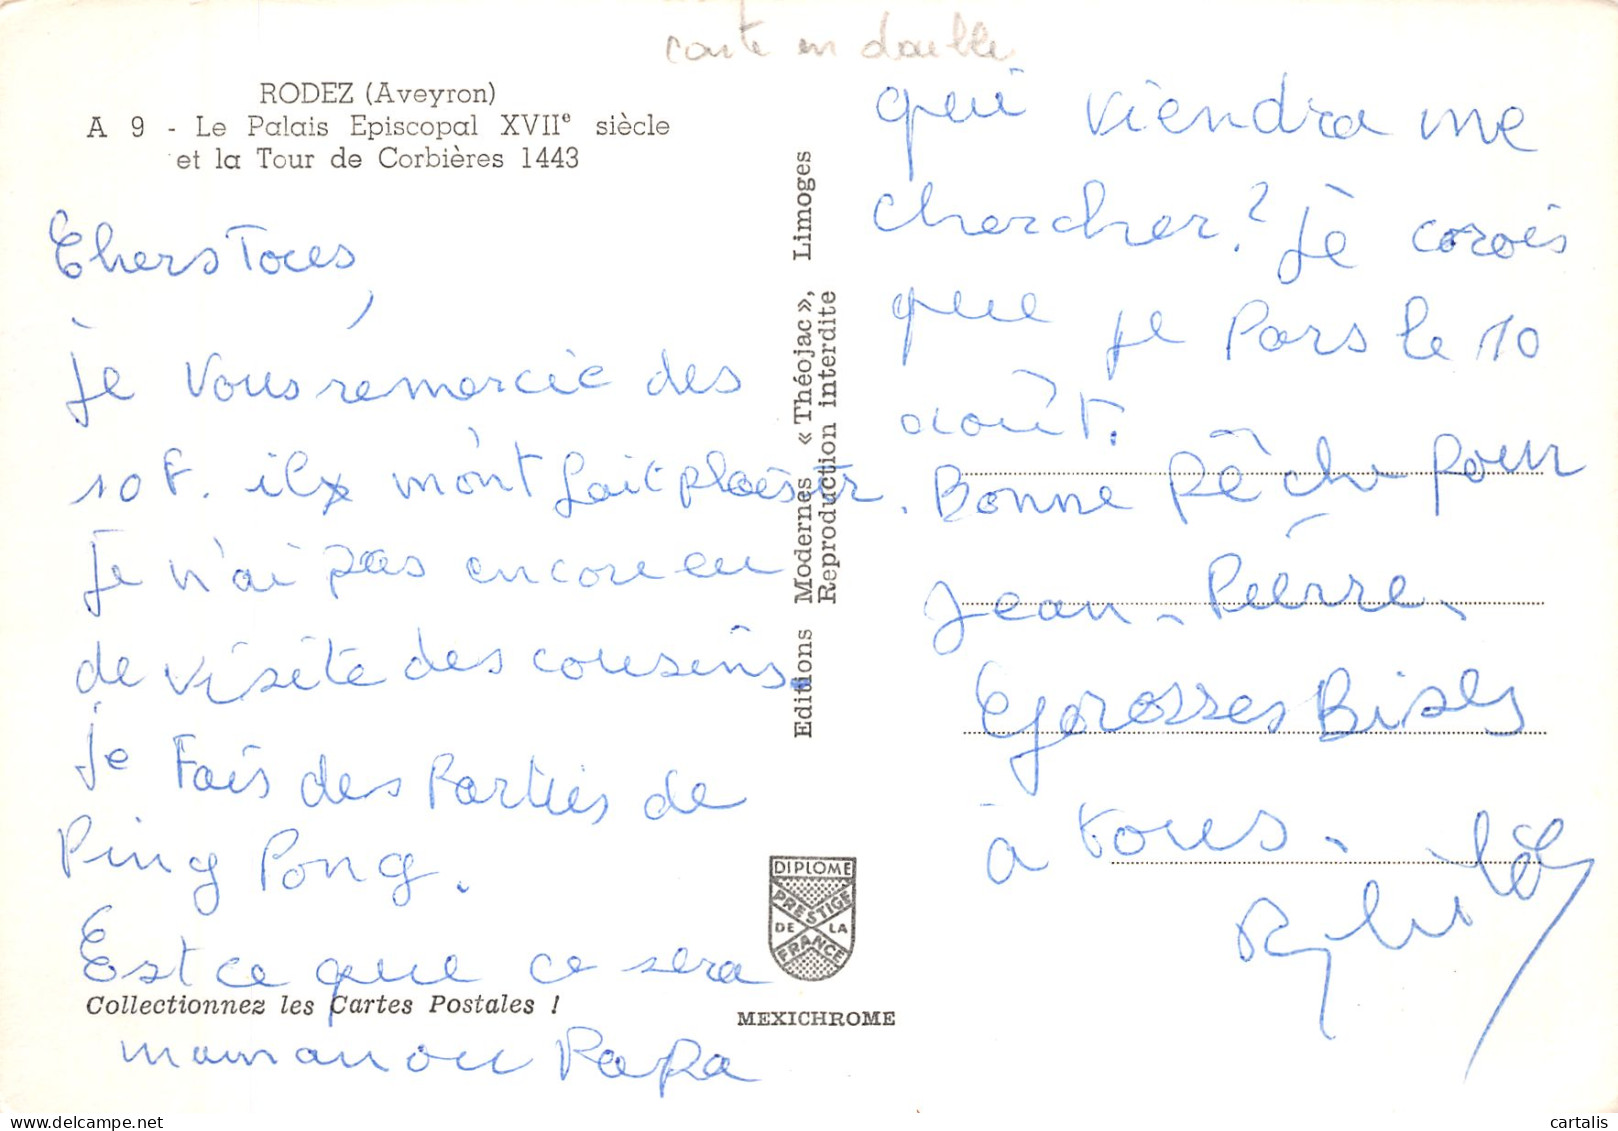 carte en double
RODEZ (Aveyron)
A 9 - Le Palais Episcopal XVIIe siècle
et la Tour de Corbières 1443
Chers Tous,
Je vous remercie des
10 F. ils m'ont fait plaisir.
Je n'ai pas encore eu
de visite des cousins.
Je Fais des Parties de
Ping Pong.
Est ce que ce sera
maman ou Papa
Collectionnez les Cartes Postales !
Editions Modernes « Théojac », Limoges
Reproduction interdite
DIPLOME
PRESTIGE
DE LA
FRANCE
MEXICHROME
qui viendra me
chercher? Je crois
que je Pars le 10
août.
Bonne pêche pour
Jean-Pierre.
Grosses Bises
à tous.
cartalis